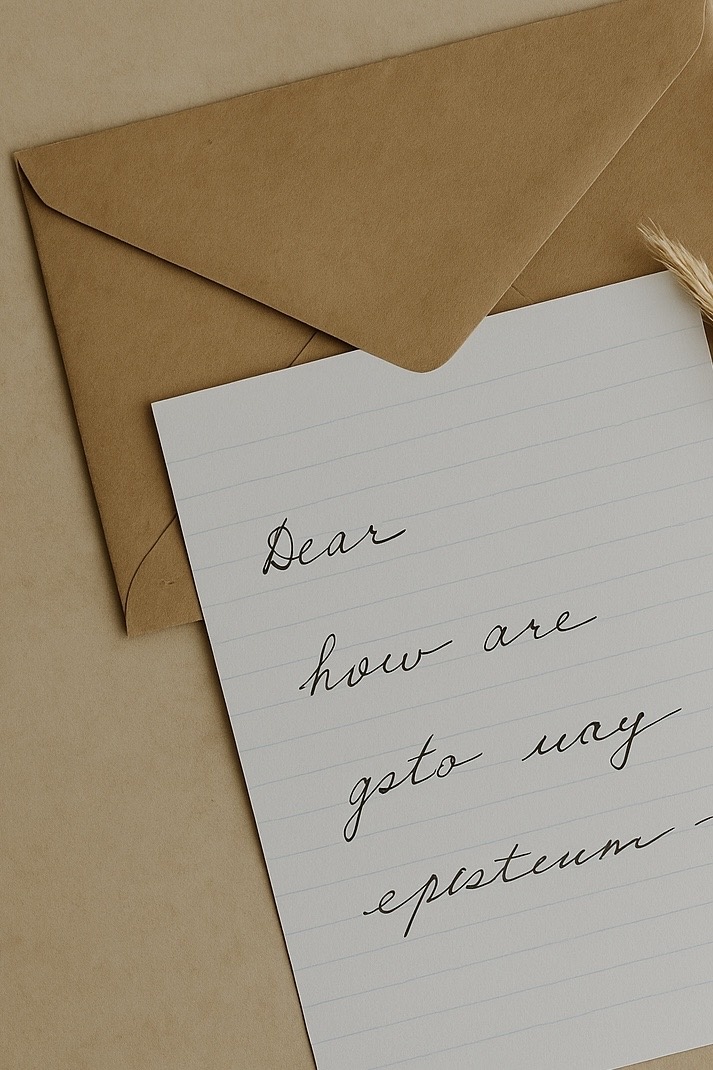 Dear
how are
gsto uray
epesteum -